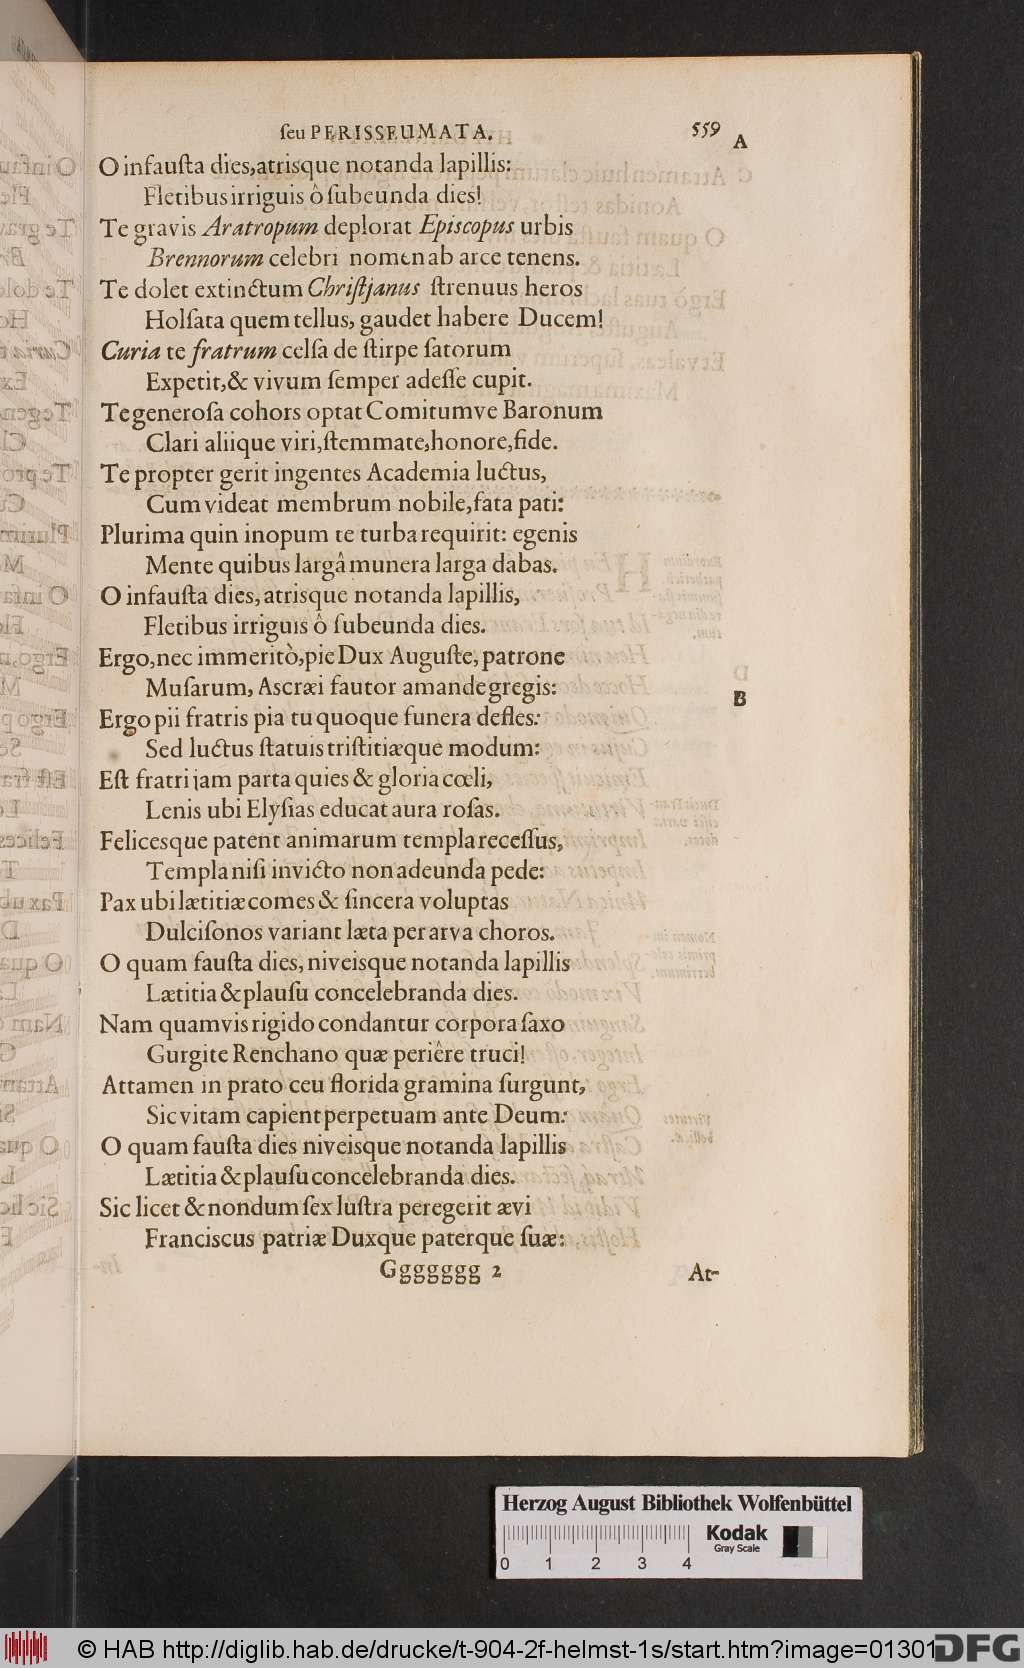 ſeu PERISSEUMATA. 559
A
O infauſta dies,atrisque notanda lapillis:
Fletibus irriguis ô ſubeunda dies!
Te gravis Aratropum deplorat Epiſcopus urbis
Brennorum celebri nomen ab arce tenens.
Te dolet extinctum Chriſtjanus ſtrenuus heros
Holſata quem tellus, gaudet habere Ducem!
Curia te fratrum celſa de ſtirpe ſatorum
Expetit,& vivum ſemper adeſſe cupit.
Te generoſa cohors optat Comitumve Baronum
Clari aliique viri,ſtemmate,honore,fide.
Te propter gerit ingentes Academia luctus,
Cum videat membrum nobile,fata pati:
Plurima quin inopum te turba requirit: egenis
Mente quibus largâ munera larga dabas.
O infauſta dies, atrisque notanda lapillis,
Fletibus irriguis ô ſubeunda dies.
Ergo,nec immeritò,pie Dux Auguſte, patrone
Muſarum, Ascræi fautor amande gregis:
B
Ergo pii fratris pia tu quoque funera defles:
Sed luctus ſtatuis triſtitiæque modum:
Eſt fratri jam parta quies & gloria cœli,
Lenis ubi Elyſias educat aura roſas.
Felicesque patent animarum templa receſſus,
Templa niſi invicto non adeunda pede:
Pax ubi lætitiæ comes & ſincera voluptas
Dulciſonos variant læta per arva choros.
O quam fauſta dies, niveisque notanda lapillis
Lætitia & plauſu concelebranda dies.
Nam quamvis rigido condantur corpora ſaxo
Gurgite Renchano quæ periêre truci!
Attamen in prato ceu florida gramina ſurgunt,
Sic vitam capient perpetuam ante Deum:
O quam fauſta dies niveisque notanda lapillis
Lætitia & plauſu concelebranda dies.
Sic licet & nondum ſex luſtra peregerit ævi
Franciscus patriæ Duxque paterque ſuæ:
Ggggggg 2 At-
Herzog August Bibliothek Wolfenbüttel
0 1 2 3 4
Kodak
Gray Scale
© HAB http://diglib.hab.de/drucke/t-904-2f-helmst-1s/start.htm?image=01301
DFG